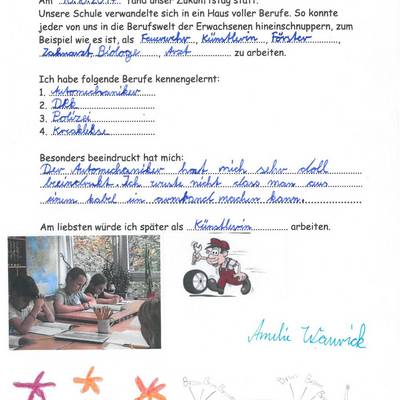 Am 10.6.2014 fand unser Zukunftstag statt.
Unsere Schule verwandelte sich in ein Haus voller Berufe. So konnte
jeder von uns in die Berufswelt der Erwachsenen hineinschnuppern, zum
Beispiel wie es ist, als Feuerwehr, Künstlerin, Förster,
Zahnarzt, Biologe, Arzt zu arbeiten.
Ich habe folgende Berufe kennengelernt:
1. Automechaniker
2. DRK
3. Polizei
4. Kreakleckse
Besonders beeindruckt hat mich:
Der Automechaniker hat mich sehr doll
beeindrukt. Ich wuste nicht dass man aus
einem kabel ein armband machen kann.
Am liebsten würde ich später als Künstlerin arbeiten.
Amilie Warwick